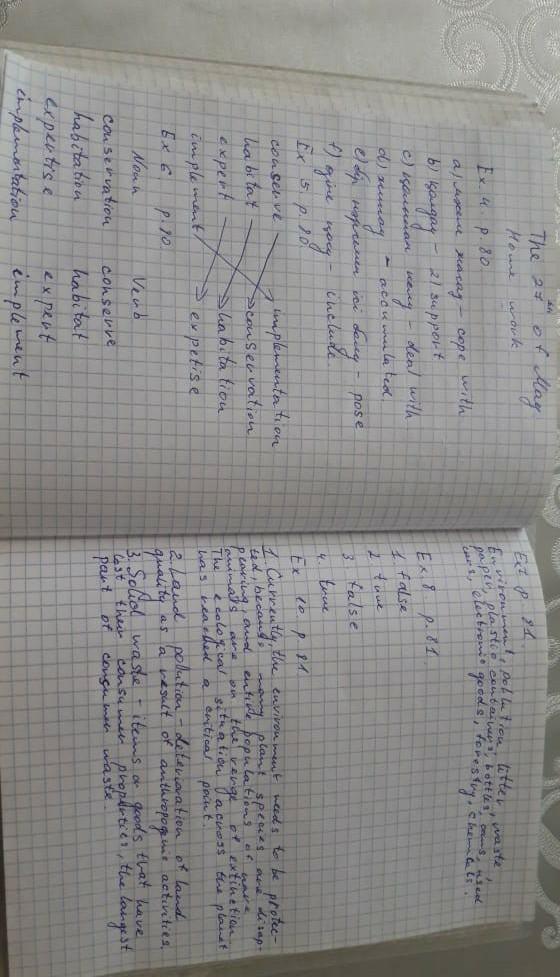 The 27th of May
Home work
Ex 4. p 80
a) - cope with
b) қолдау - 2) support
c) - deal with
d) жинау - accumulated.
e) - pose
f) - include.
Ex 5 p 80
conserve implementation
habitat conservation
expert habitation
implement expetise
Ex 6 p. 80
Noun Verb
conservation conserve
habitation habitat
expertise expert
implementation implement
Ex 7 p. 81.
Environment, pollution, litter, waste,
paper, plastic containers, bottles, cans, used
electronic goods, forestry, chemicals.
Ex 8 p. 81
1. false
2. true
3. false
4. true
Ex 10. p 81
1. Currently, the environment needs to be protec-
ted, because many plant species are disap-
pearing and entire populations of
animals are on the verge of extinction
The ecological situation across the planet
has reached a critical point.
2. Land pollution - deterioration of land
quality as a result of anthropogenic activities.
3. Solid waste - items or goods that have
lost their consumer properties, the largest
part of consumer waste